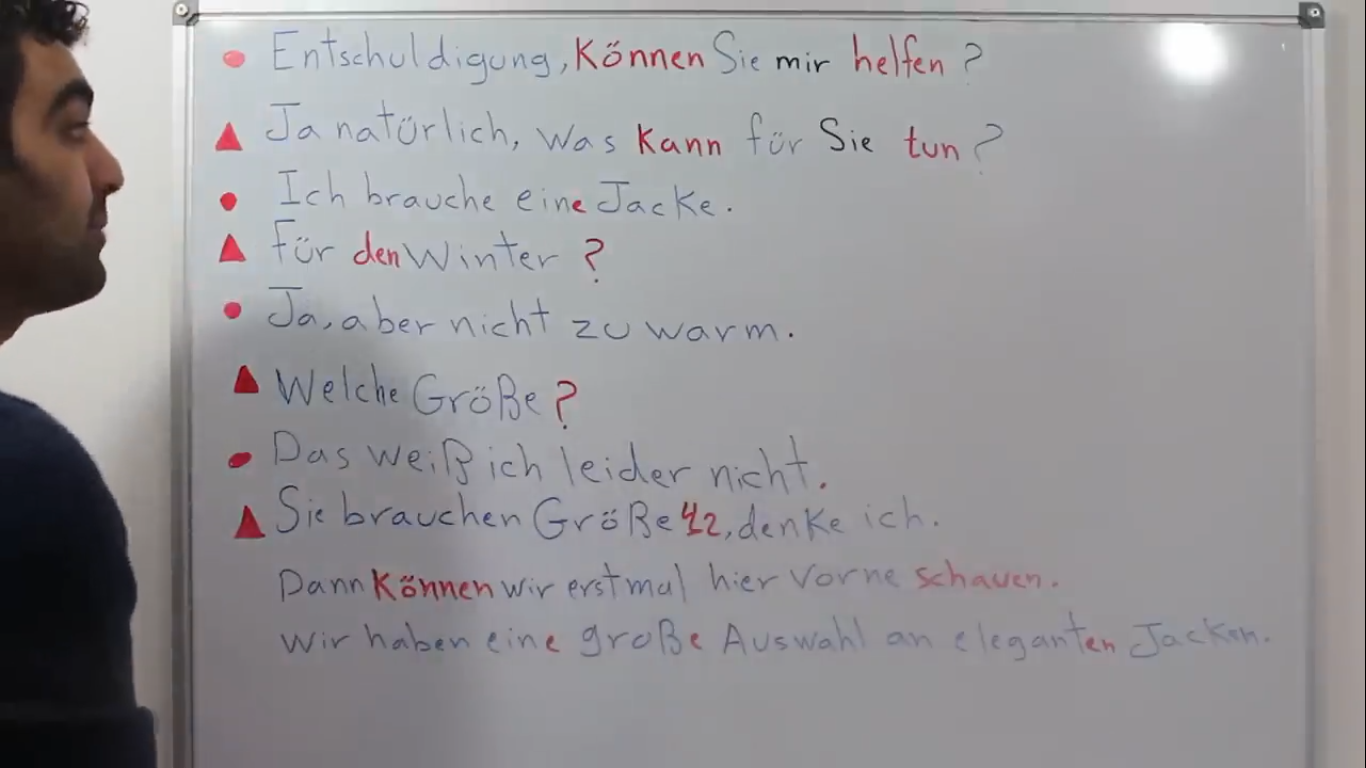 Entschuldigung, Können Sie mir helfen?
Ja natürlich, was kann für Sie tun?
Ich brauche eine Jacke.
für den Winter?
Ja, aber nicht zu warm.
Welche Größe?
Das weiß ich leider nicht.
Sie brauchen Größe 42, denke ich.
Dann Können wir erstmal hier vorne schauen.
Wir haben eine große Auswahl an eleganten Jacken.